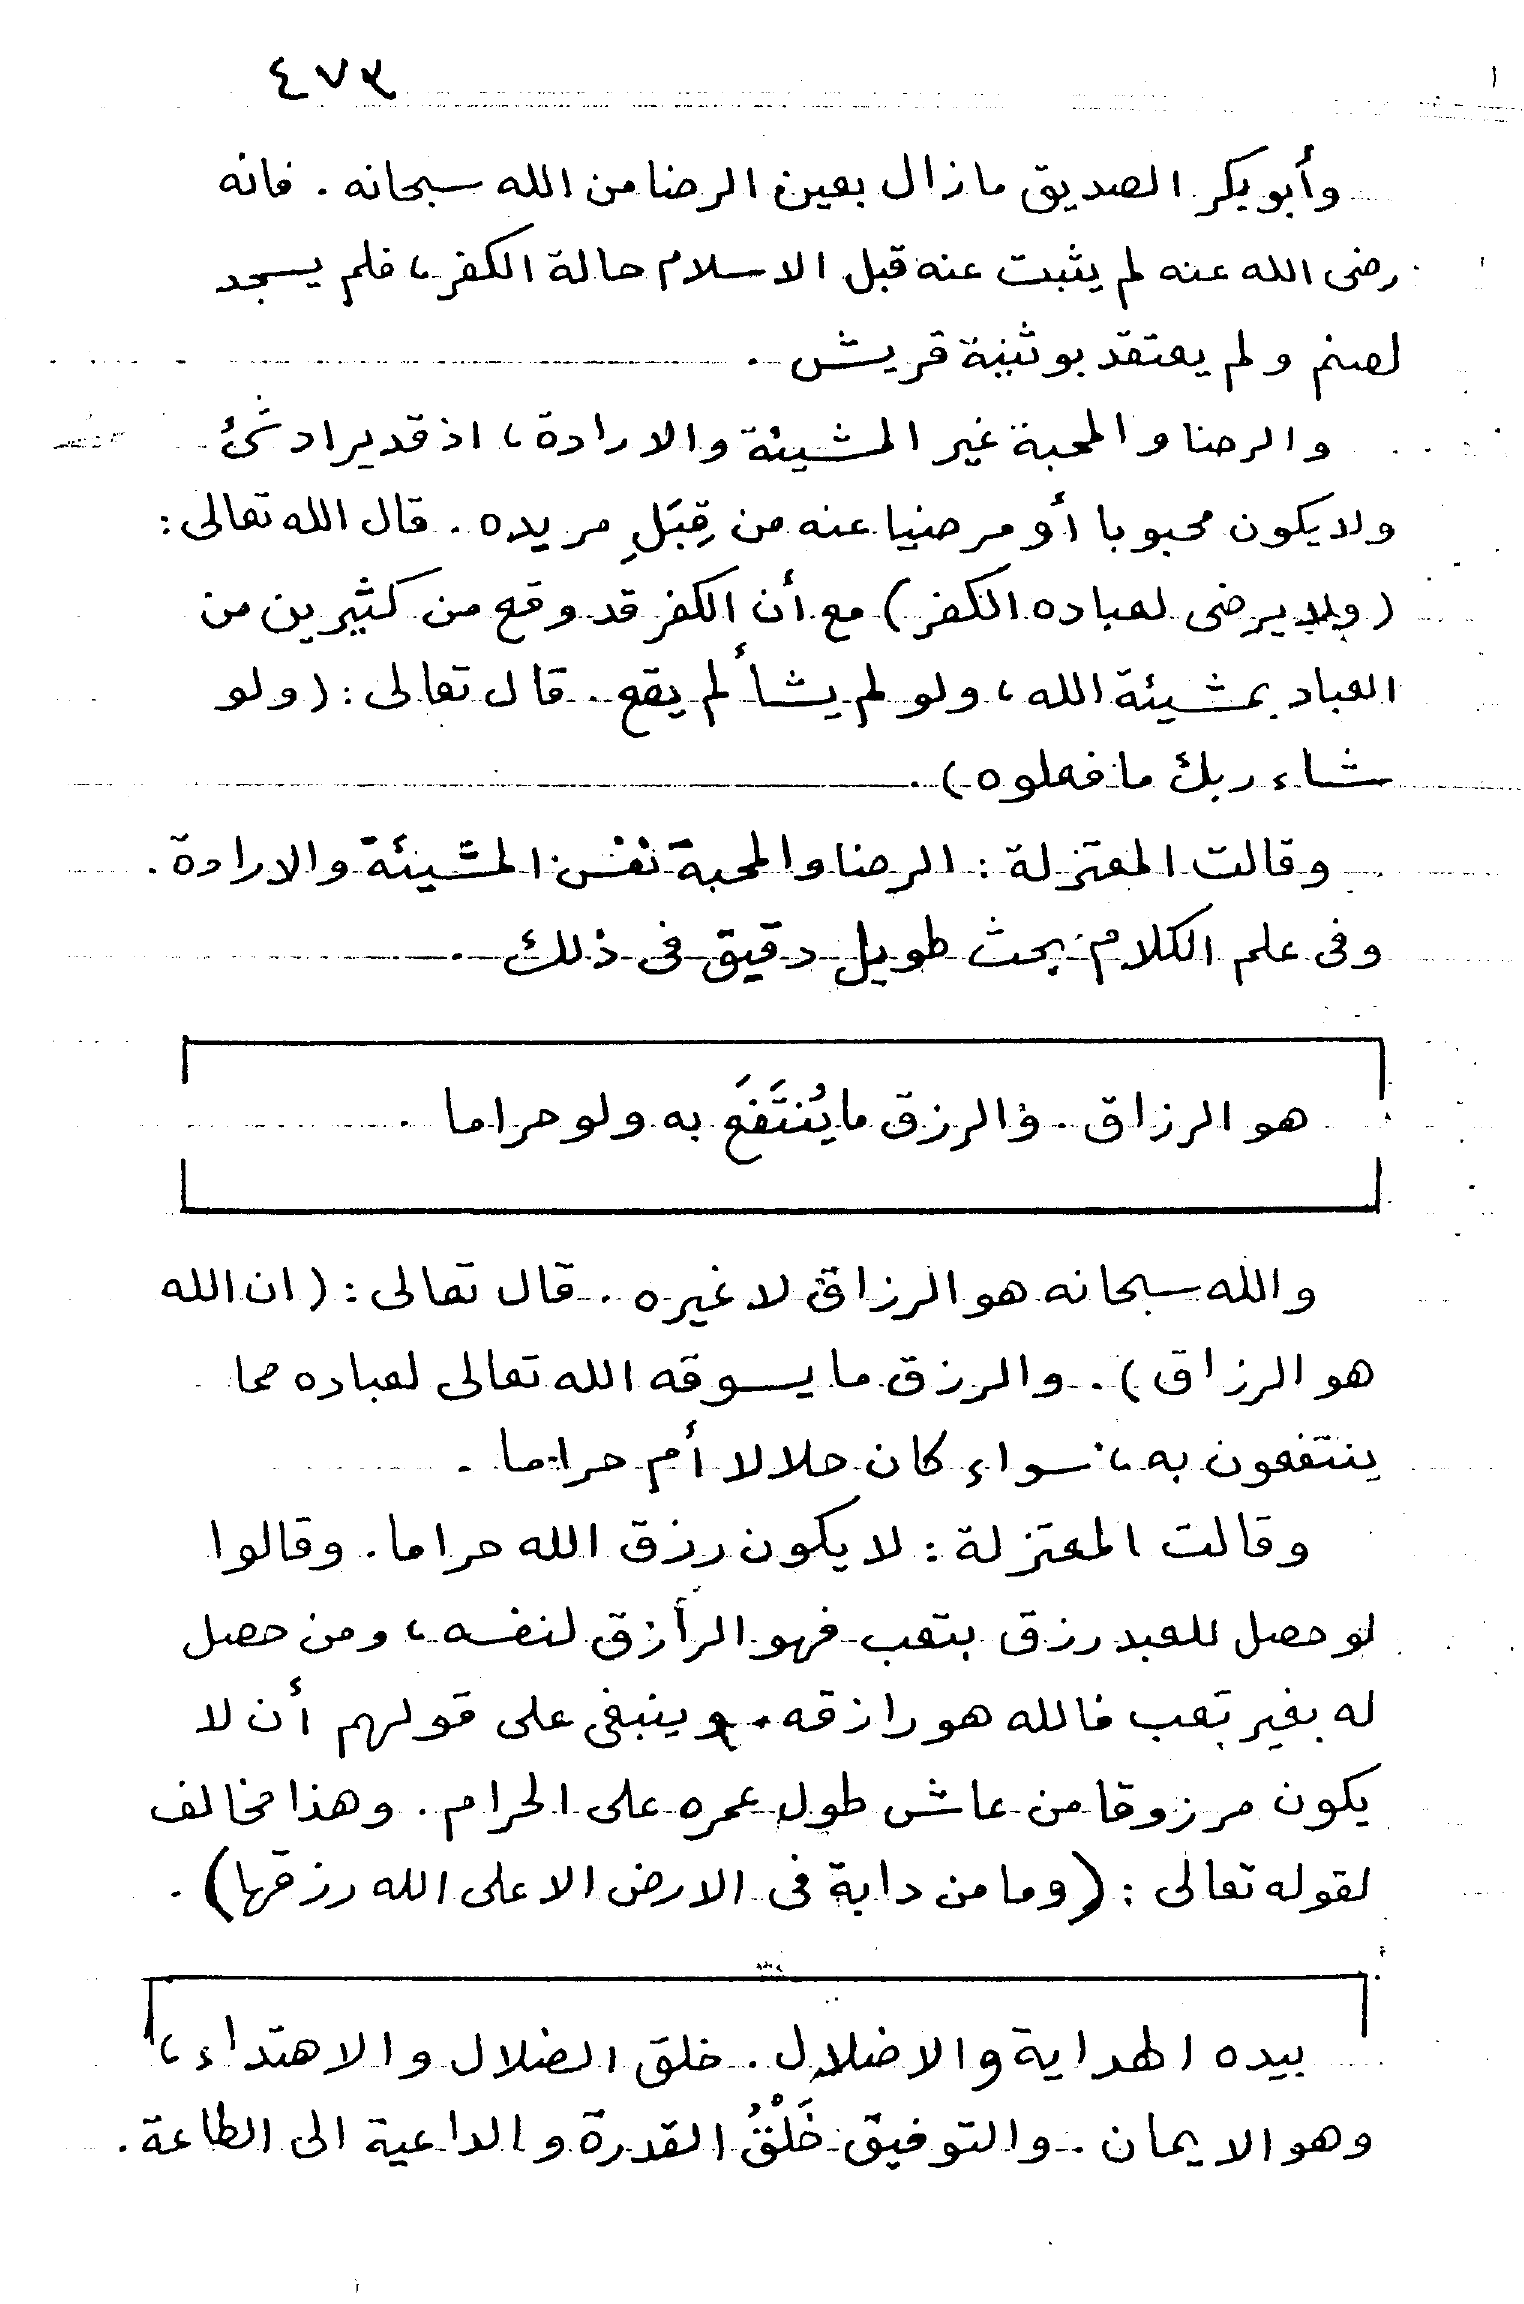 ٤٧٣
وأبو بكر الصديق ما زال بعين الرضا من الله سبحانه . فانه
رضى الله عنه لم يثبت عنه قبل الاسلام حالة الكفر، فلم يسجد
لصنم و لم يعتقد بوثنية قريش .
والرضا والمحبة غير المشيئة والارادة ، اذ قد يراد شئ
ولا يكون محبوبا أو مرضيا عنه من قِبَلِ مريده . قال الله تعالى :
( ولا يرضى لعباده الكفر ) مع أن الكفر قد وقع من كثيرين من
العباد بمشيئة الله ، ولو لم يشأ لم يقع . قال تعالى : ( ولو
شاء ربك ما فعلوه ) .
وقالت المعتزلة : الرضا والمحبة نفس المشيئة والارادة .
وفى علم الكلام بحث طويل دقيق فى ذلك .
هو الرزاق . والرزق ما يُنتَفَعَ به ولو حراما .
والله سبحانه هو الرزاق لا غيره . قال تعالى : ( ان الله
هو الرزاق ) . والرزق ما يسوقه الله تعالى لعباده مما
ينتفعون به ، سواء كان حلالا أم حراما .
وقالت المعتزلة : لا يكون رزق الله حراما . وقالوا
لو حصل للعبد رزق بتعب فهو الرازق لنفسه ، ومن حصل
له بغير تعب فالله هو رازقه . وينبغى على قولهم أن لا
يكون مرزوقا من عاش طول عمره على الحرام . وهذا مخالف
لقوله تعالى : ( وما من دابة فى الارض الا على الله رزقها ) .
بيده الهداية والاضلال . خلق الضلال والاهتداء ،
وهو الايمان . والتوفيق خَلْقُ القدرة والداعية الى الطاعة .